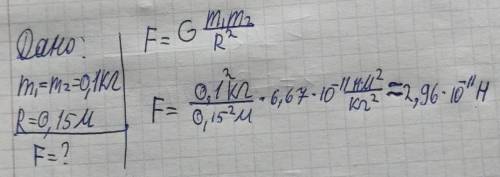 Дано:
m₁=m₂=0,1кг
R=0,15м
F=?
F=G m₁m₂/R²
F= 0,1²кг/0,15²м · 6,67·10⁻¹¹ Н·м²/кг² ≈ 2,96·10⁻¹¹Н